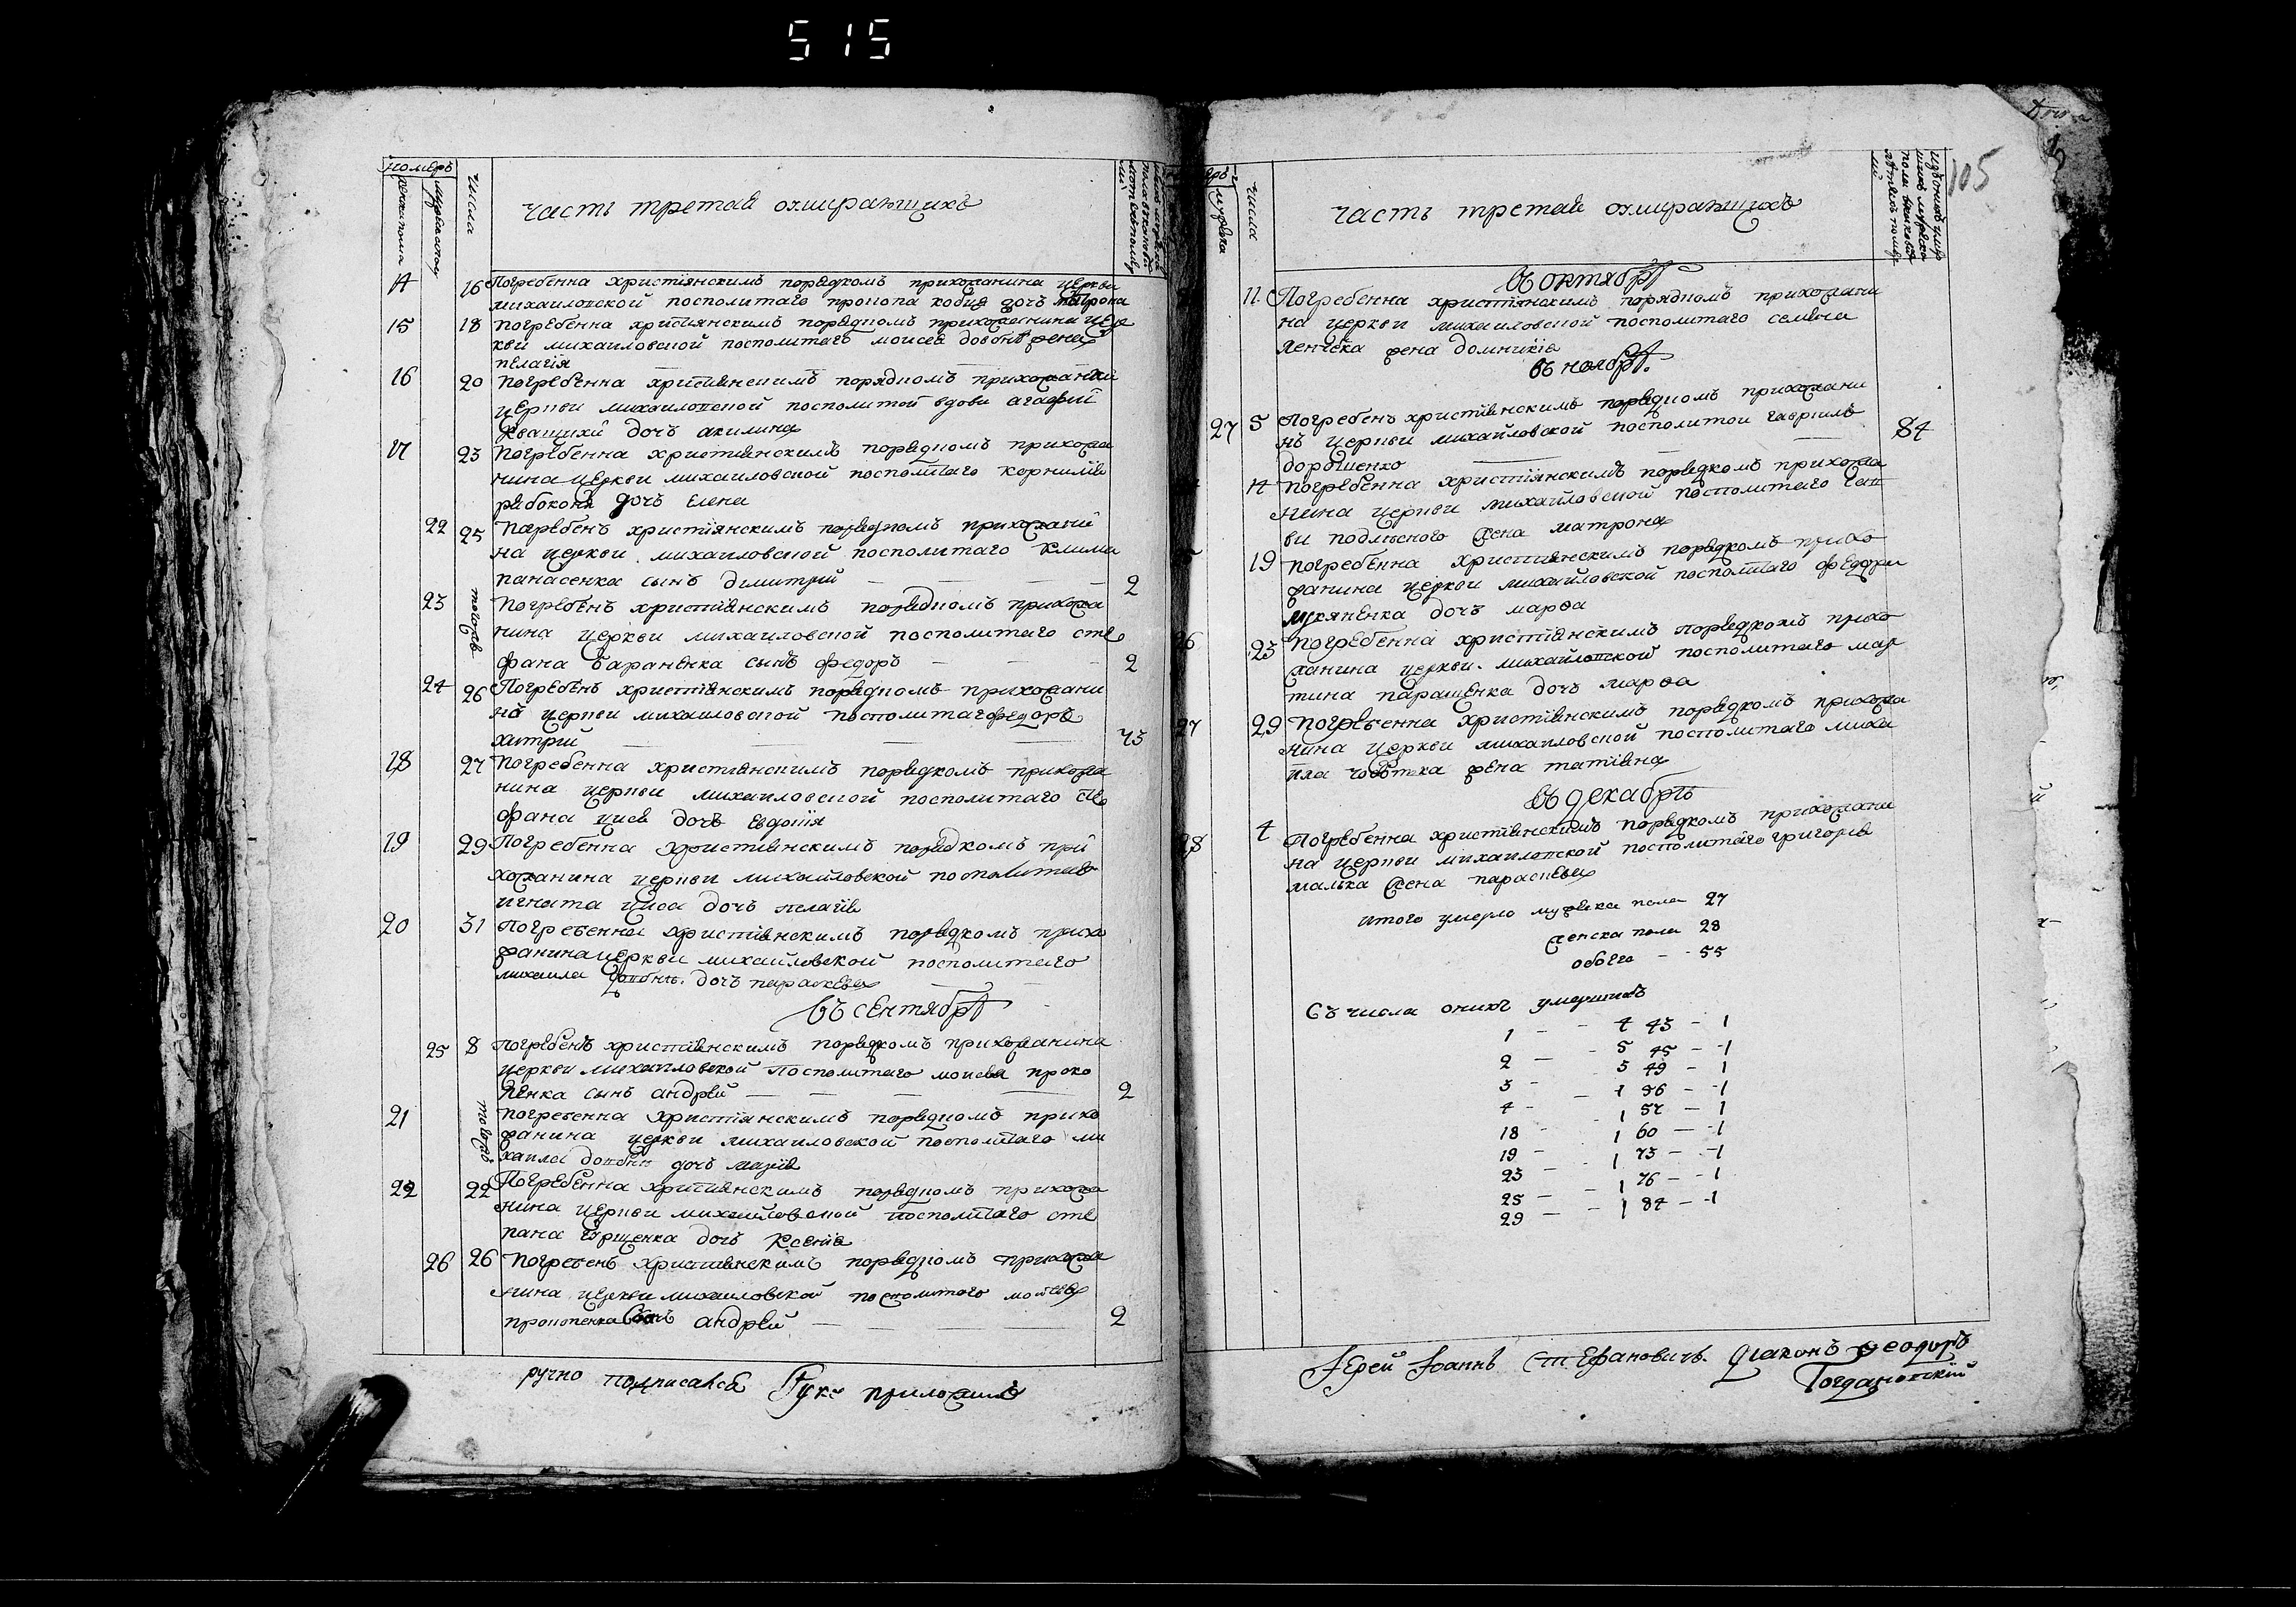 515
номеръ
числа
часть третая о умирающихъ
14 16 Погребенна христіянскимъ порядкомъ прихожанина церкви
михаиловской посполитаго прокопа кобця дочъ матрона
15 18 погребенна христіянскимъ порядкомъ прихожанина цер
кви михаиловской посполитаго моисея жена
пелагія
16 20 погребенна християнскимъ порядкомъ прихожанки
церкви михаиловской посполитой вдови агафіи
квашихи дочъ акилина
17 23 погребенна християнскимъ порядкомъ прихожа
нина церкви михаиловской посполитаго корнилія
рябоконя дочъ елена
22 25 погребенъ христіянскимъ порядкомъ прихожани
на церкви михаиловской посполитаго клима
панасенка сынъ димитрій 2
23 тогожъ погребенъ християнскимъ порядкомъ прихожа
нина церкви михаиловской посполитаго сте
фана бараненка сынъ федоръ 2
24 26 Погребенъ христіянскимъ порядкомъ прихожани
нъ церкви михаиловской посполитаго федоръ
хитрий 73
18 27 Погребенна християнскимъ порядкомъ прихожа
нина церкви михаиловской посполитаго сте
фана дочъ евдокія
19 29 Погребенна християнскимъ порядкомъ при
хожанина церкви михайловской посполитаго
игната дочъ пелагія
20 31 Погребенна християнскимъ порядкомъ прихо
жанина церкви михайловской посполитаго
михаила дочъ параскевия
въ сентябрѣ
25 8 погребенъ християнскимъ порядкомъ прихожанина
церкви михаиловской посполитаго моисея проко
пенка сынъ андрей 2
21 тогожъ погребенна християнскимъ порядкомъ прихо
жанина церкви михаиловской посполитаго ми
хаила дочъ марія
22 22 Погребенна християнскимъ порядкомъ прихожа
нина церкви михайловской посполитаго сте
пана дочъ ксенія
26 26 погребенъ християнскимъ порядкомъ прихожа
нина церкви михаиловской посполитаго моисея
прокопенка синъ андрей 2
ручно подписался Руку приложилъ
105
числа
часть третая о умирающихъ
въ октябрѣ
11 Погребенна христіянскимъ порядкомъ прихожани
на церкви михаиловской посполитаго семена
жена домникия
въ ноябрѣ
27 5 погребенъ христіянскимъ порядкомъ прихожани
нъ церкви михайловской посполитой гавриилъ
дорошенко 84
14 погребенна христіянскимъ порядкомъ прихожа
нина церкви михайловской посполитаго сав
ви жена матрона
19 погребенна християнскимъ порядкомъ прихо
жанина церкви михайловской посполитаго федора
лукяненка дочъ марѳа
26 23 погребенна христіянскимъ порядкомъ прихо
жанина церкви михайловской посполитаго мар
тина паращенка дочъ марѳа
27 29 погребенна християнскимъ порядкомъ прихожа
нина церкви михаиловской посполитаго миха
ила жена татіяна
въ декабрѣ
28 4 погребенна християнскимъ порядкомъ прихожани
на церкви михаиловской посполитаго григорія
малька жена параскевия
итого умерло мужеска пола 27
женска пола 28
обоего 55
Съ числа онихъ умершихъ
1 - - 4 43 - 1
2 - - 5 45 - 1
3 - 5 49 - 1
4 - - 1 56 - 1
18 - 1 57 - 1
19 - 1 60 - 1
23 - 1 73 - 1
25 - - 1 76 - 1
29 - - 1 84 - 1
Іерей Іоаннъ Стефановичъ. діаконъ Феодоръ
Богдановскій